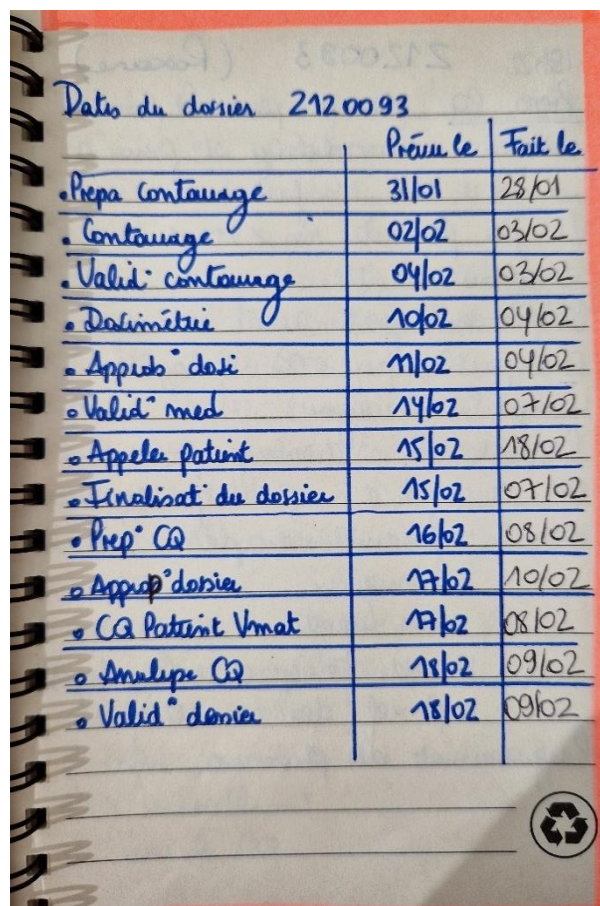 Dates du dossier 2120093
Prévu le Fait le
• Prepa contourage 31/01 28/01
• Contourage 02/02 03/02
• Valid° contourage 04/02 03/02
• Dosimétrie 10/02 04/02
• Approb° dosi 11/02 04/02
• Valid° med 14/02 07/02
• Appeler patient 15/02 18/02
• Finalisat° du dossier 15/02 07/02
• Prep° CQ 16/02 08/02
• Approp° dossier 17/02 10/02
• CQ Patient Vmat 17/02 08/02
• Analyse CQ 18/02 09/02
• Valid° dossier 18/02 09/02